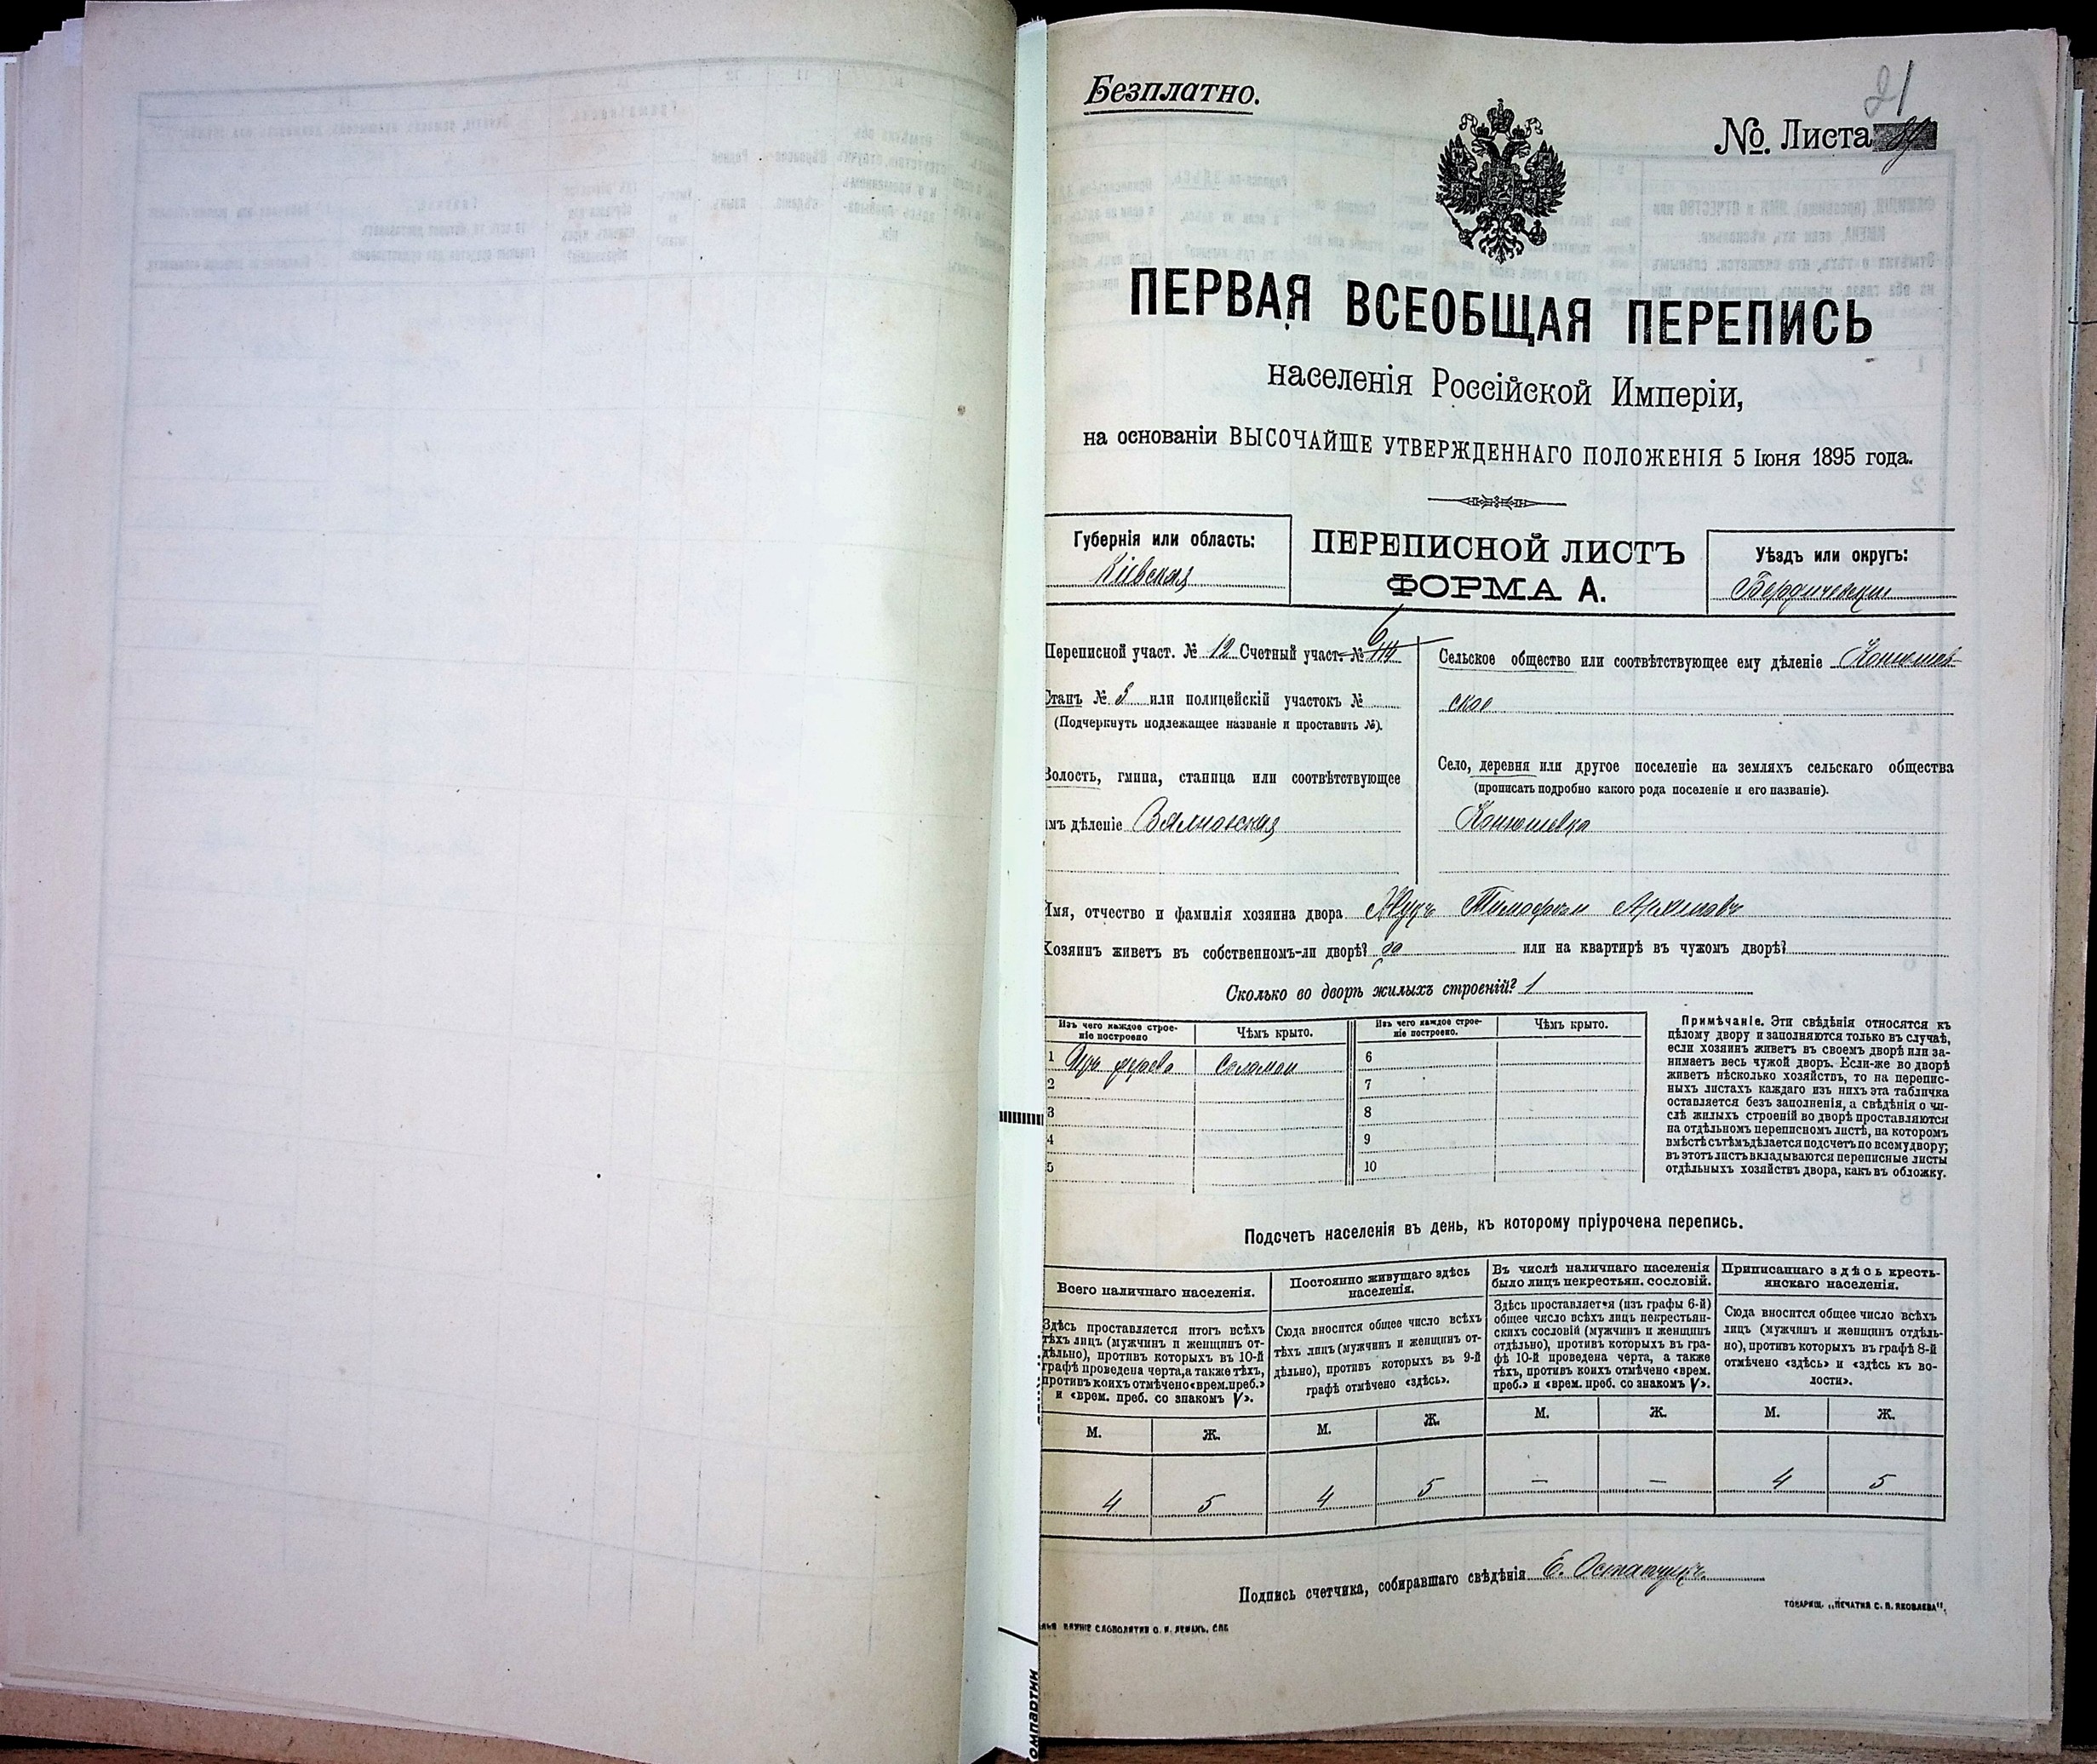 Безплатно.
21
№. Листа
ПЕРВАЯ ВСЕОБЩАЯ ПЕРЕПИСЬ
населенія Россійской Имперіи,
на основаніи ВЫСОЧАЙШЕ УТВЕРЖДЕННАГО ПОЛОЖЕНІЯ 5 Іюня 1895 года.
Губернія или область:
Кіевская
ПЕРЕПИСНОЙ ЛИСТЪ
ФОРМА А.
Уѣздъ или округъ:
Бердичевскій
Переписной участ. № 12 Счетный участ. № 6
Станъ № 3 или полицейскій участокъ №
(Подчеркнуть подлежащее названіе и проставить №).
Волость, гмина, станица или соотвѣтствующее
имъ дѣленіе
Сельское общество или соотвѣтствующее ему дѣленіе Конюшев-
ское
Село, деревня или другое поселеніе на земляхъ сельскаго общества
(прописать подробно какого рода поселеніе и его названіе).
Конюшевка
Имя, отчество и фамилія хозяина двора Тимофей Архиповъ
Хозяинъ живетъ въ собственномъ-ли дворѣ? да или на квартирѣ въ чужомъ дворѣ?
Сколько во дворѣ жилыхъ строеній? 1
Изъ чего каждое строе-
ніе построено
Чѣмъ крыто.
Изъ чего каждое строе-
ніе построено.
Чѣмъ крыто.
1 Изъ дерева Соломой 6
2 7
3 8
4 9
5 10
Примѣчаніе. Эти свѣдѣнія относятся къ
цѣлому двору и заполняются только въ случаѣ,
если хозяинъ живетъ въ своемъ дворѣ или за-
нимаетъ весь чужой дворъ. Если-же во дворѣ
живетъ нѣсколько хозяйствъ, то на перепис-
ныхъ листахъ каждаго изъ нихъ эта табличка
оставляется безъ заполненія, а свѣдѣнія о чи-
слѣ жилыхъ строеній во дворѣ проставляются
на отдѣльномъ переписномъ листѣ, на которомъ
вмѣстѣ съ тѣмъ дѣлается подсчетъ по всему двору;
въ этотъ листъ вкладываются переписные листы
отдѣльныхъ хозяйствъ двора, какъ въ обложку.
Подсчетъ населенія въ день, къ которому пріурочена перепись.
Всего наличнаго населенія.
Здѣсь проставляется итогъ всѣхъ
тѣхъ лицъ (мужчинъ и женщинъ от-
дѣльно), противъ которыхъ въ 10-й
графѣ проведена черта, а также тѣхъ,
противъ коихъ отмѣчено «врем. преб.»
и «врем. преб. со знакомъ V».
Постоянно живущаго здѣсь
населенія.
Сюда вносится общее число всѣхъ
тѣхъ лицъ (мужчинъ и женщинъ от-
дѣльно), противъ которыхъ въ 9-й
графѣ отмѣчено «здѣсь».
Въ числѣ наличнаго населенія
было лицъ некрестьян. сословій.
Здѣсь проставляется (изъ графы 6-й)
общее число всѣхъ лицъ некрестьян-
скихъ сословій (мужчинъ и женщинъ
отдѣльно), противъ которыхъ въ гра-
фѣ 10-й проведена черта, а также
тѣхъ, противъ коихъ отмѣчено «врем.
преб.» и «врем. преб. со знакомъ V».
Приписаннаго здѣсь кресть-
янскаго населенія.
Сюда вносится общее число всѣхъ
лицъ (мужчинъ и женщинъ отдѣль-
но), противъ которыхъ въ графѣ 8-й
отмѣчено «здѣсь» и «здѣсь къ во-
лости».
М. Ж. М. Ж. М. Ж. М. Ж.
4 5 4 5 — — 4 5
Подпись счетчика, собиравшаго свѣдѣнія Е. Остапчукъ
ТОВАРИЩ. „ПЕЧАТНЯ С. П. ЯКОВЛЕВА".
СЛОВОЛИТНИ О. И. ЛЕМАНЪ, СПБ